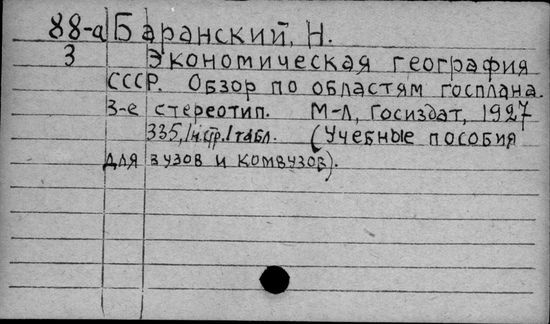 88-а Баранский, Н.
3 Экономическая география
СССР. Обзор по областям госплана.
3-е стереотип. М-Л, Госиздат, 1927
335, 1 н.стр. 1 табл. (Учебные пособия
для вузов и комвузов).